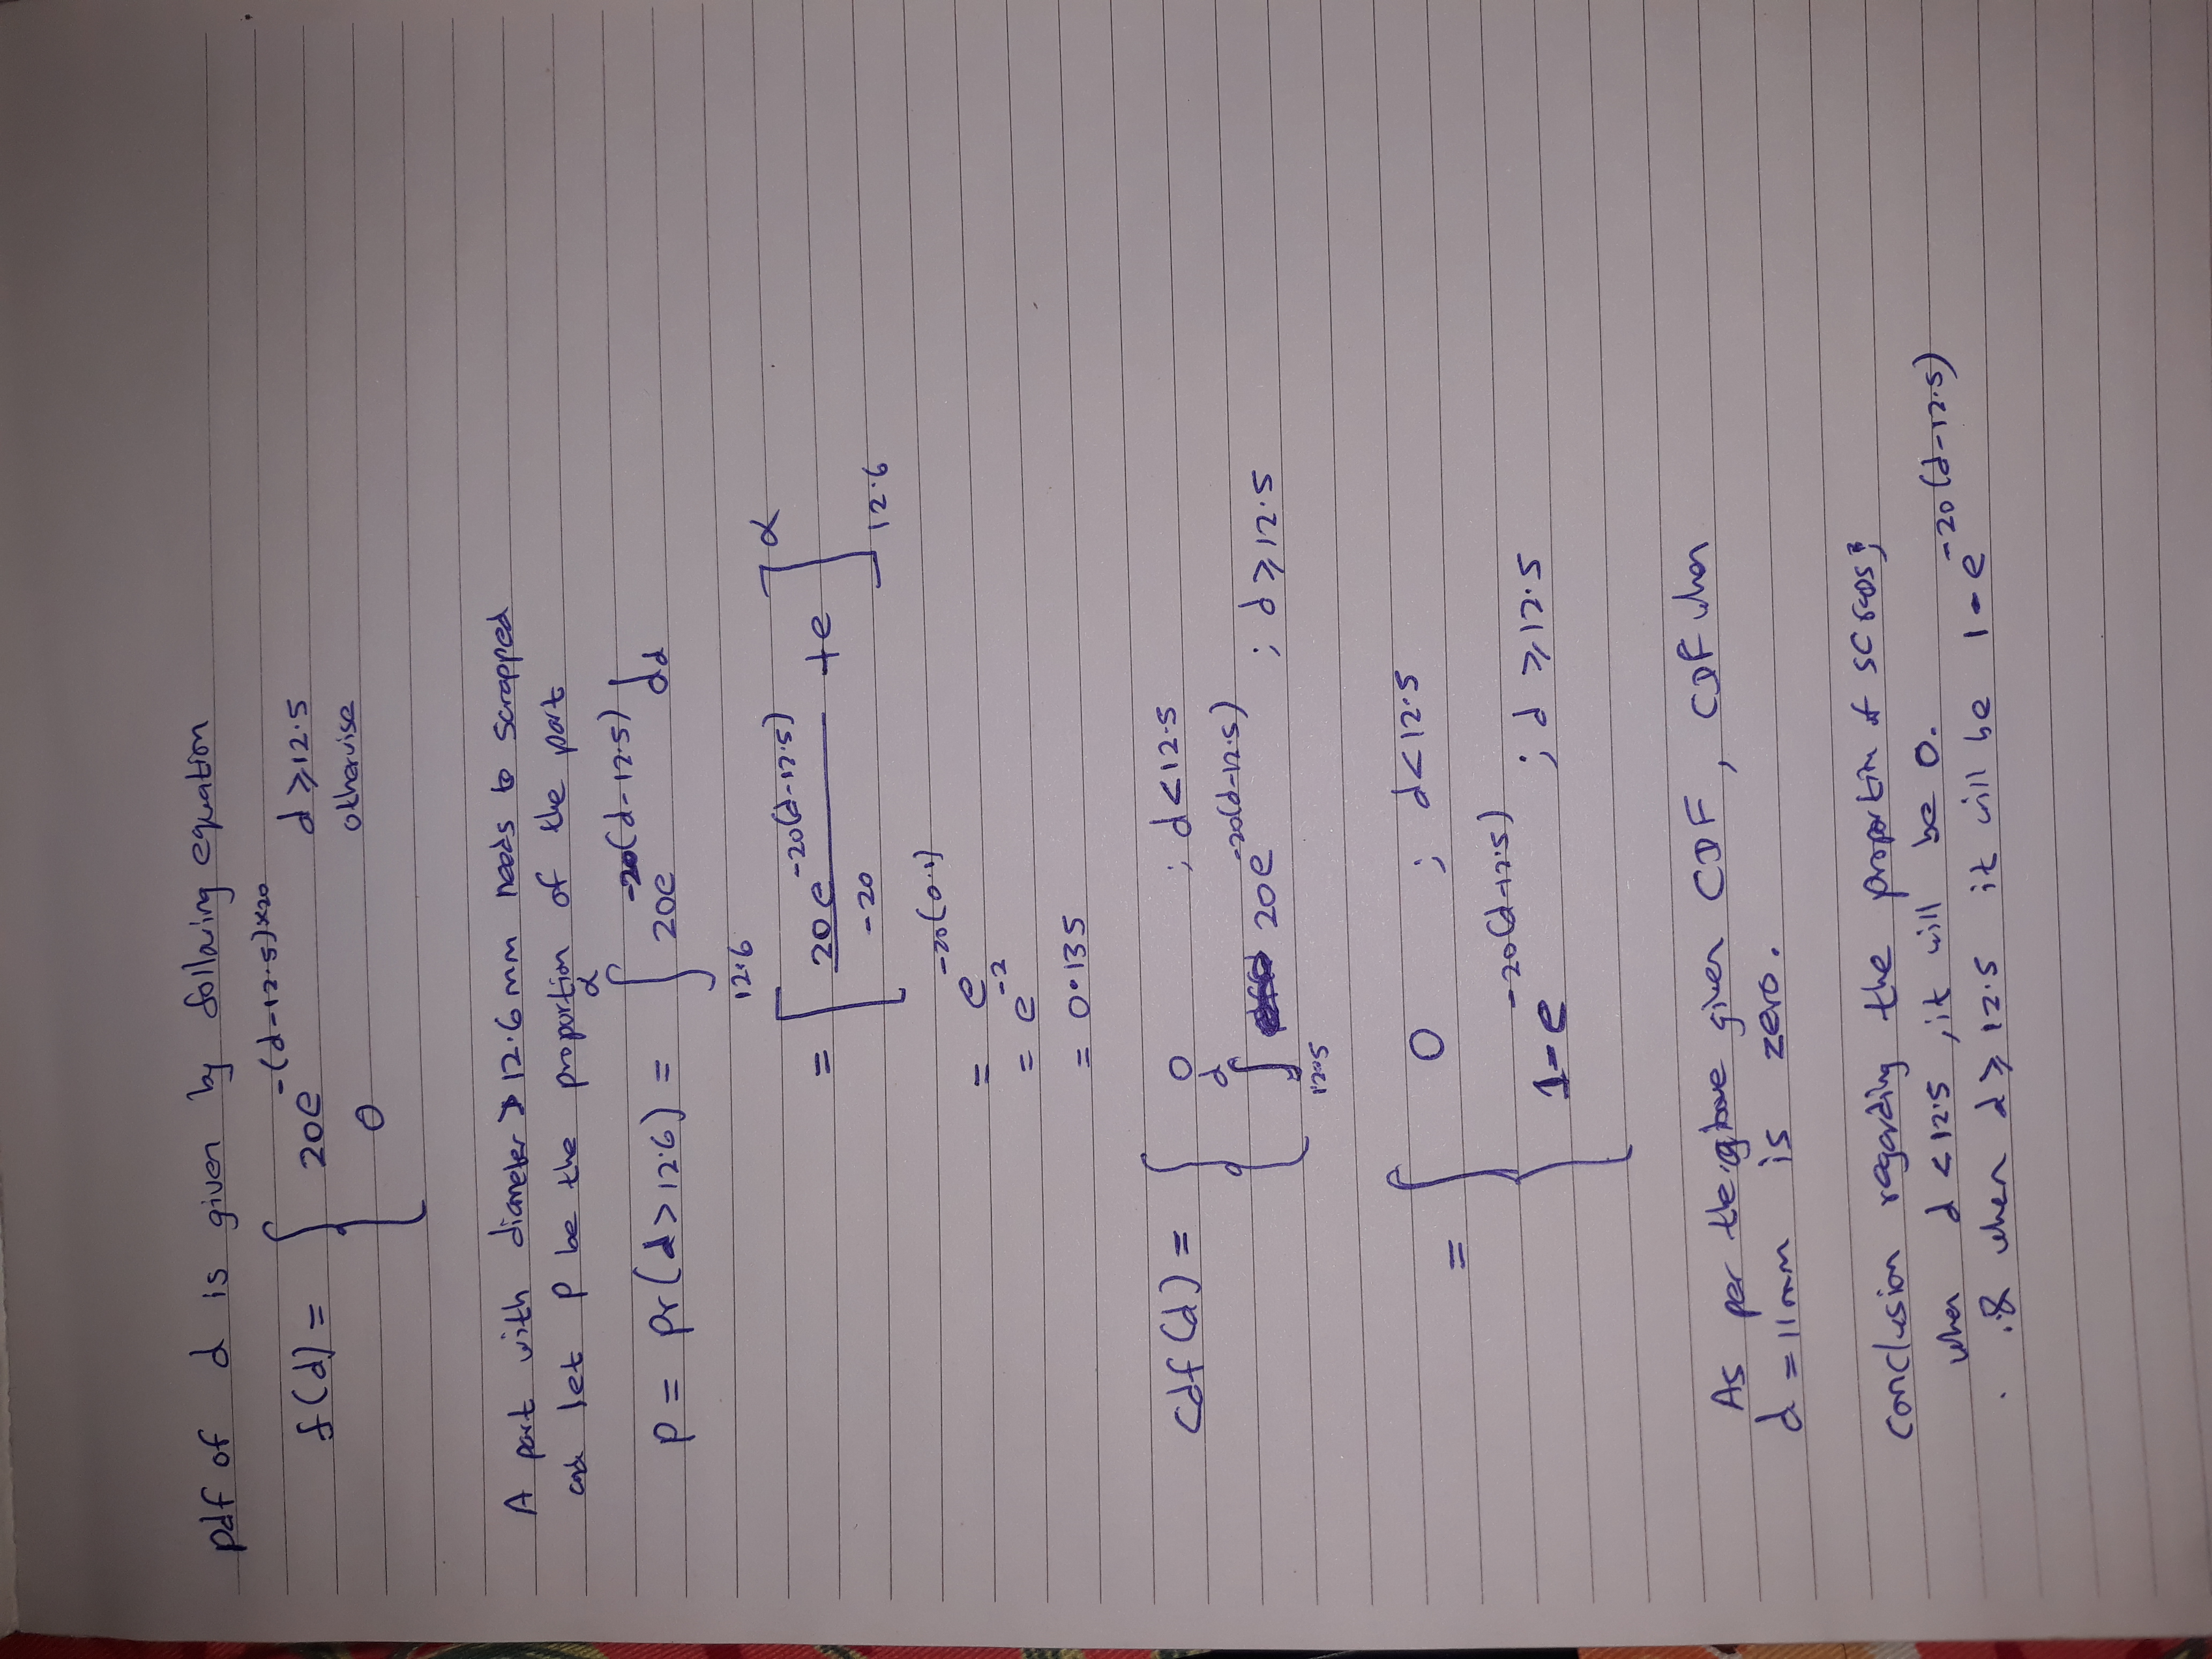 pdf of d is given by following equation
f(d) = { 20e^{-(d-12.5)×20} d ≥ 12.5
0 otherwise
A part with diameter > 12.6 mm needs to scrapped
and let P be the proportion of the part
P = Pr(d > 12.6) = ∫_{12.6}^{α} 20e^{-20(d-12.5)} dd
= [ 20e^{-20(d-12.5)} / -20 + e ]_{12.6}^{α}
= e^{-20(0.1)}
= e^{-2}
= 0.135
Cdf(d) = { 0 ; d < 12.5
∫_{12.5}^{d} 20e^{-20(d-12.5)} ; d ≥ 12.5
= { 0 ; d < 12.5
1-e^{-20(d-12.5)} ; d ≥ 12.5
As per the above given CDF, CDF when
d = 11mm is zero.
Conclusion regarding the proportion of scraps;
when d < 12.5, it will be 0.
& when d ≥ 12.5 it will be 1-e^{-20(d-12.5)}